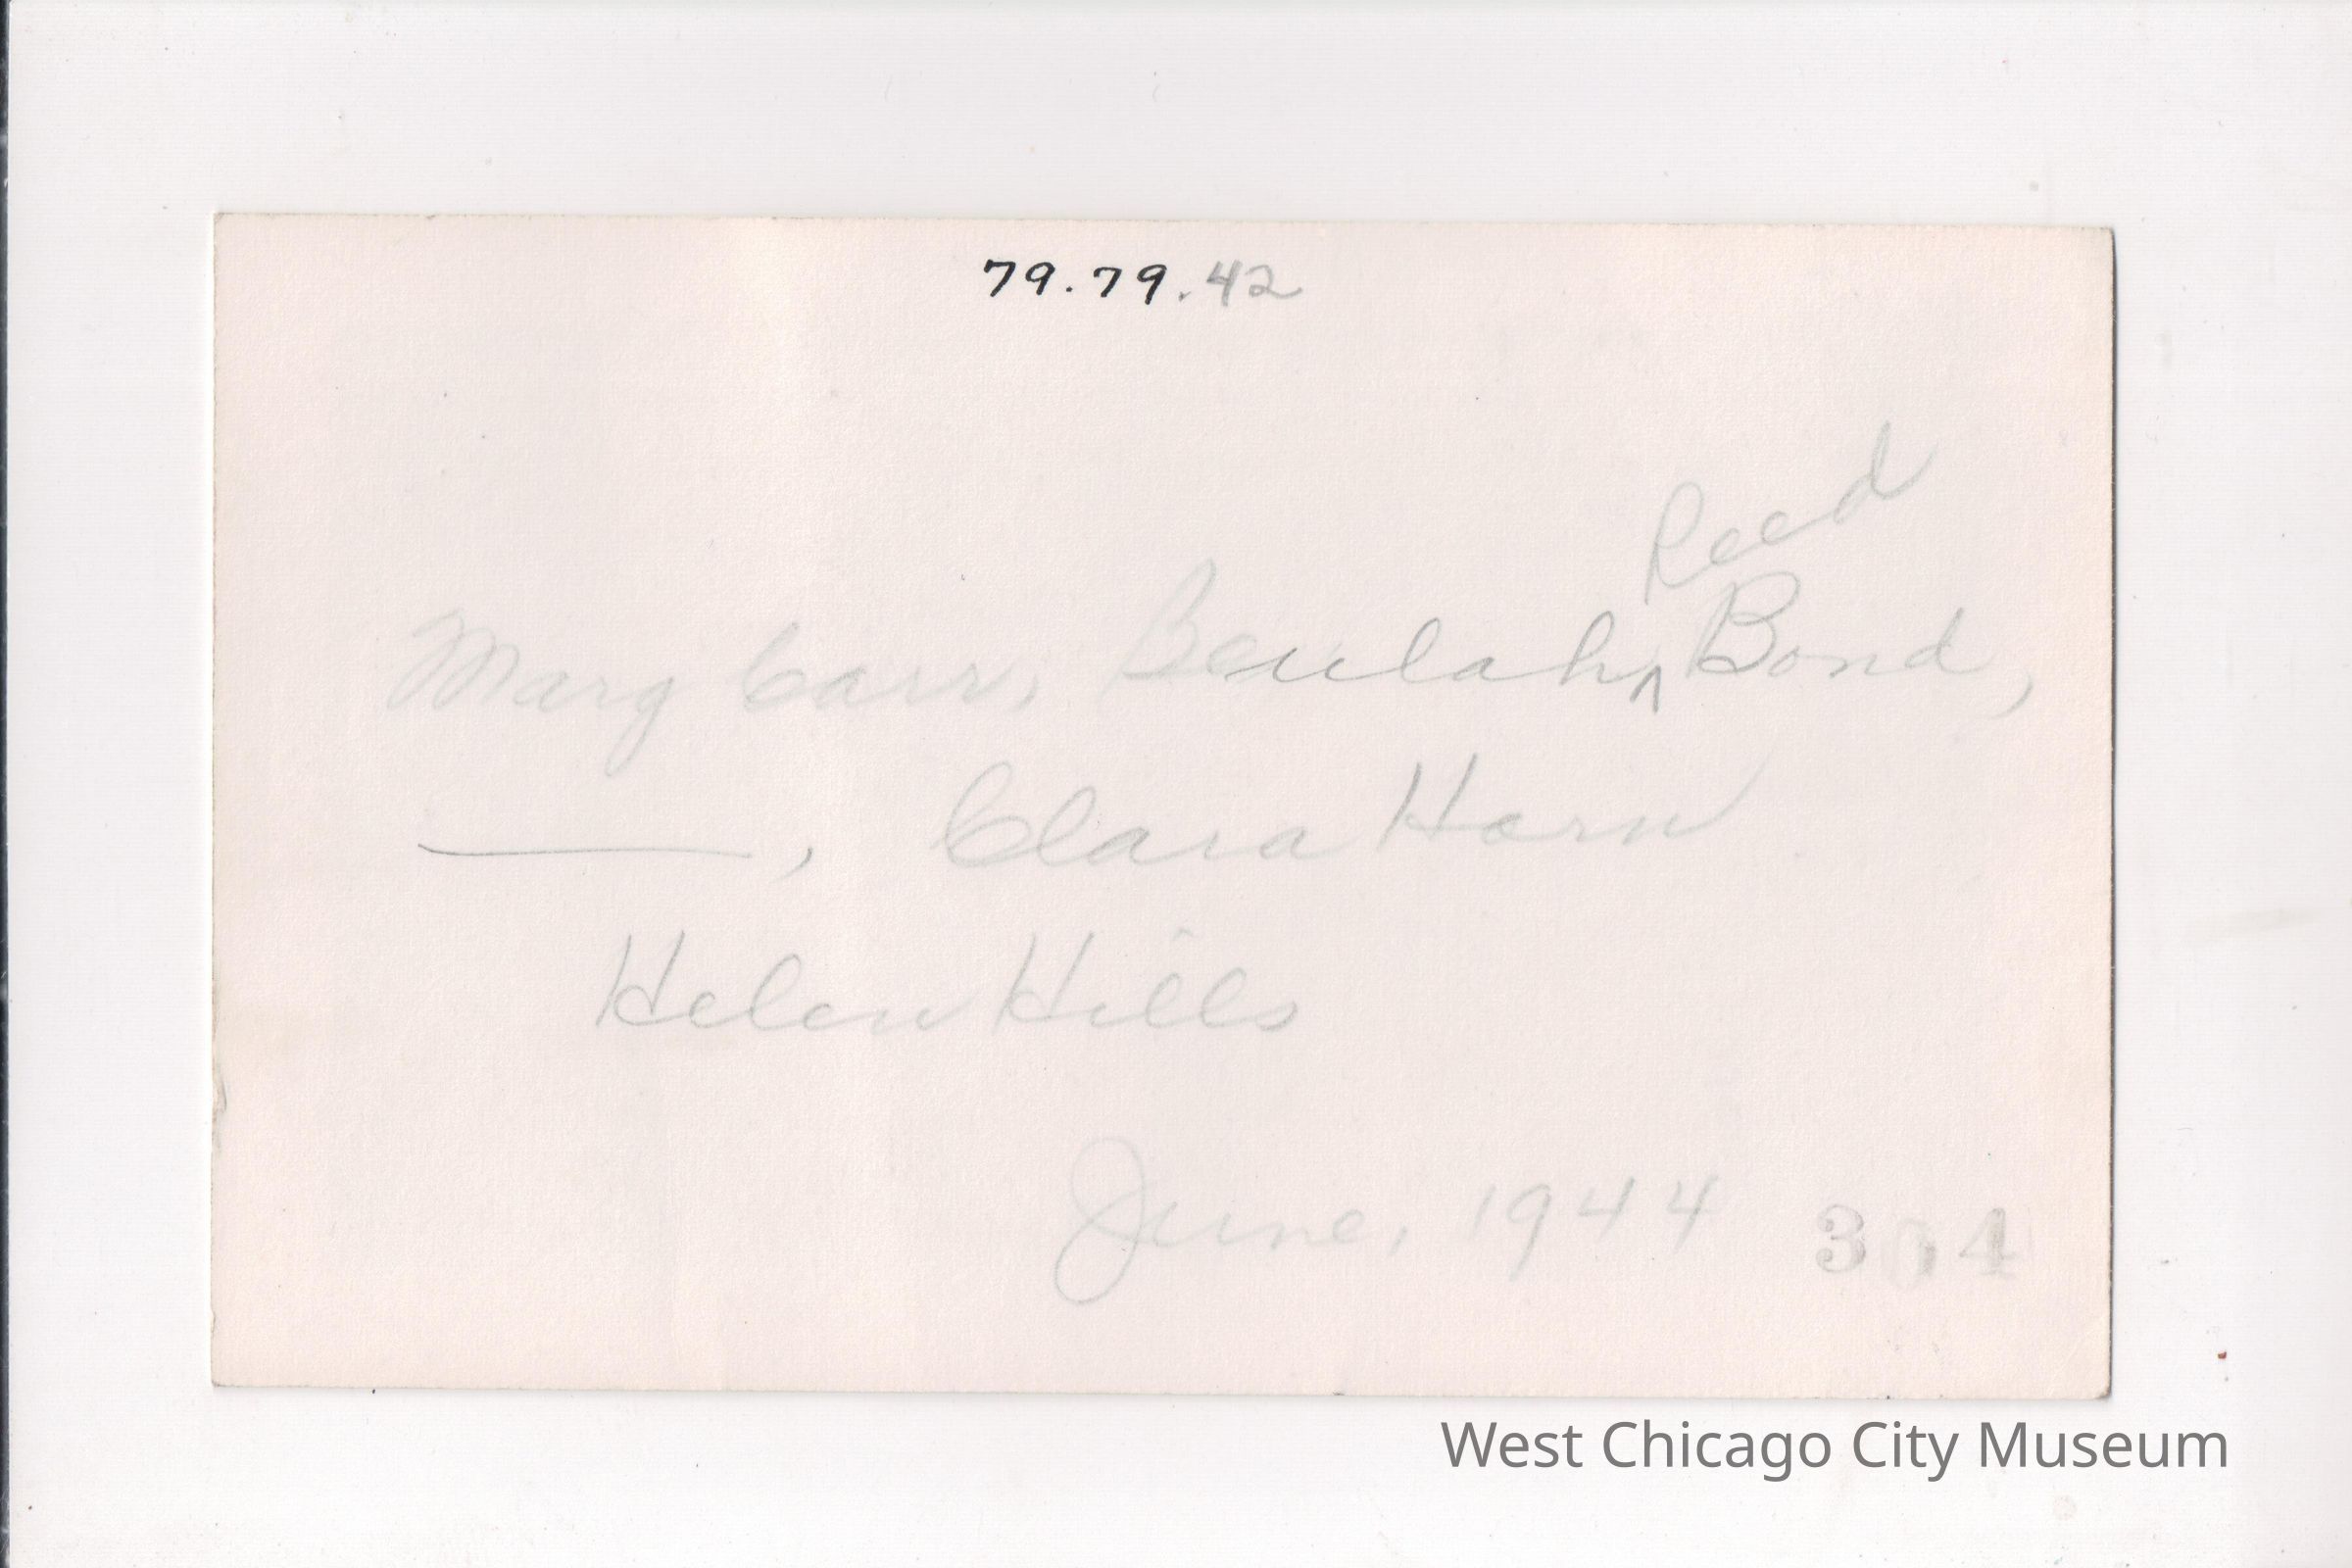 79.79.42
Reed
Mary Carr, Beulah ^ Bond,
———, Clara Horn
Helen Hills
June, 1944
West Chicago City Museum